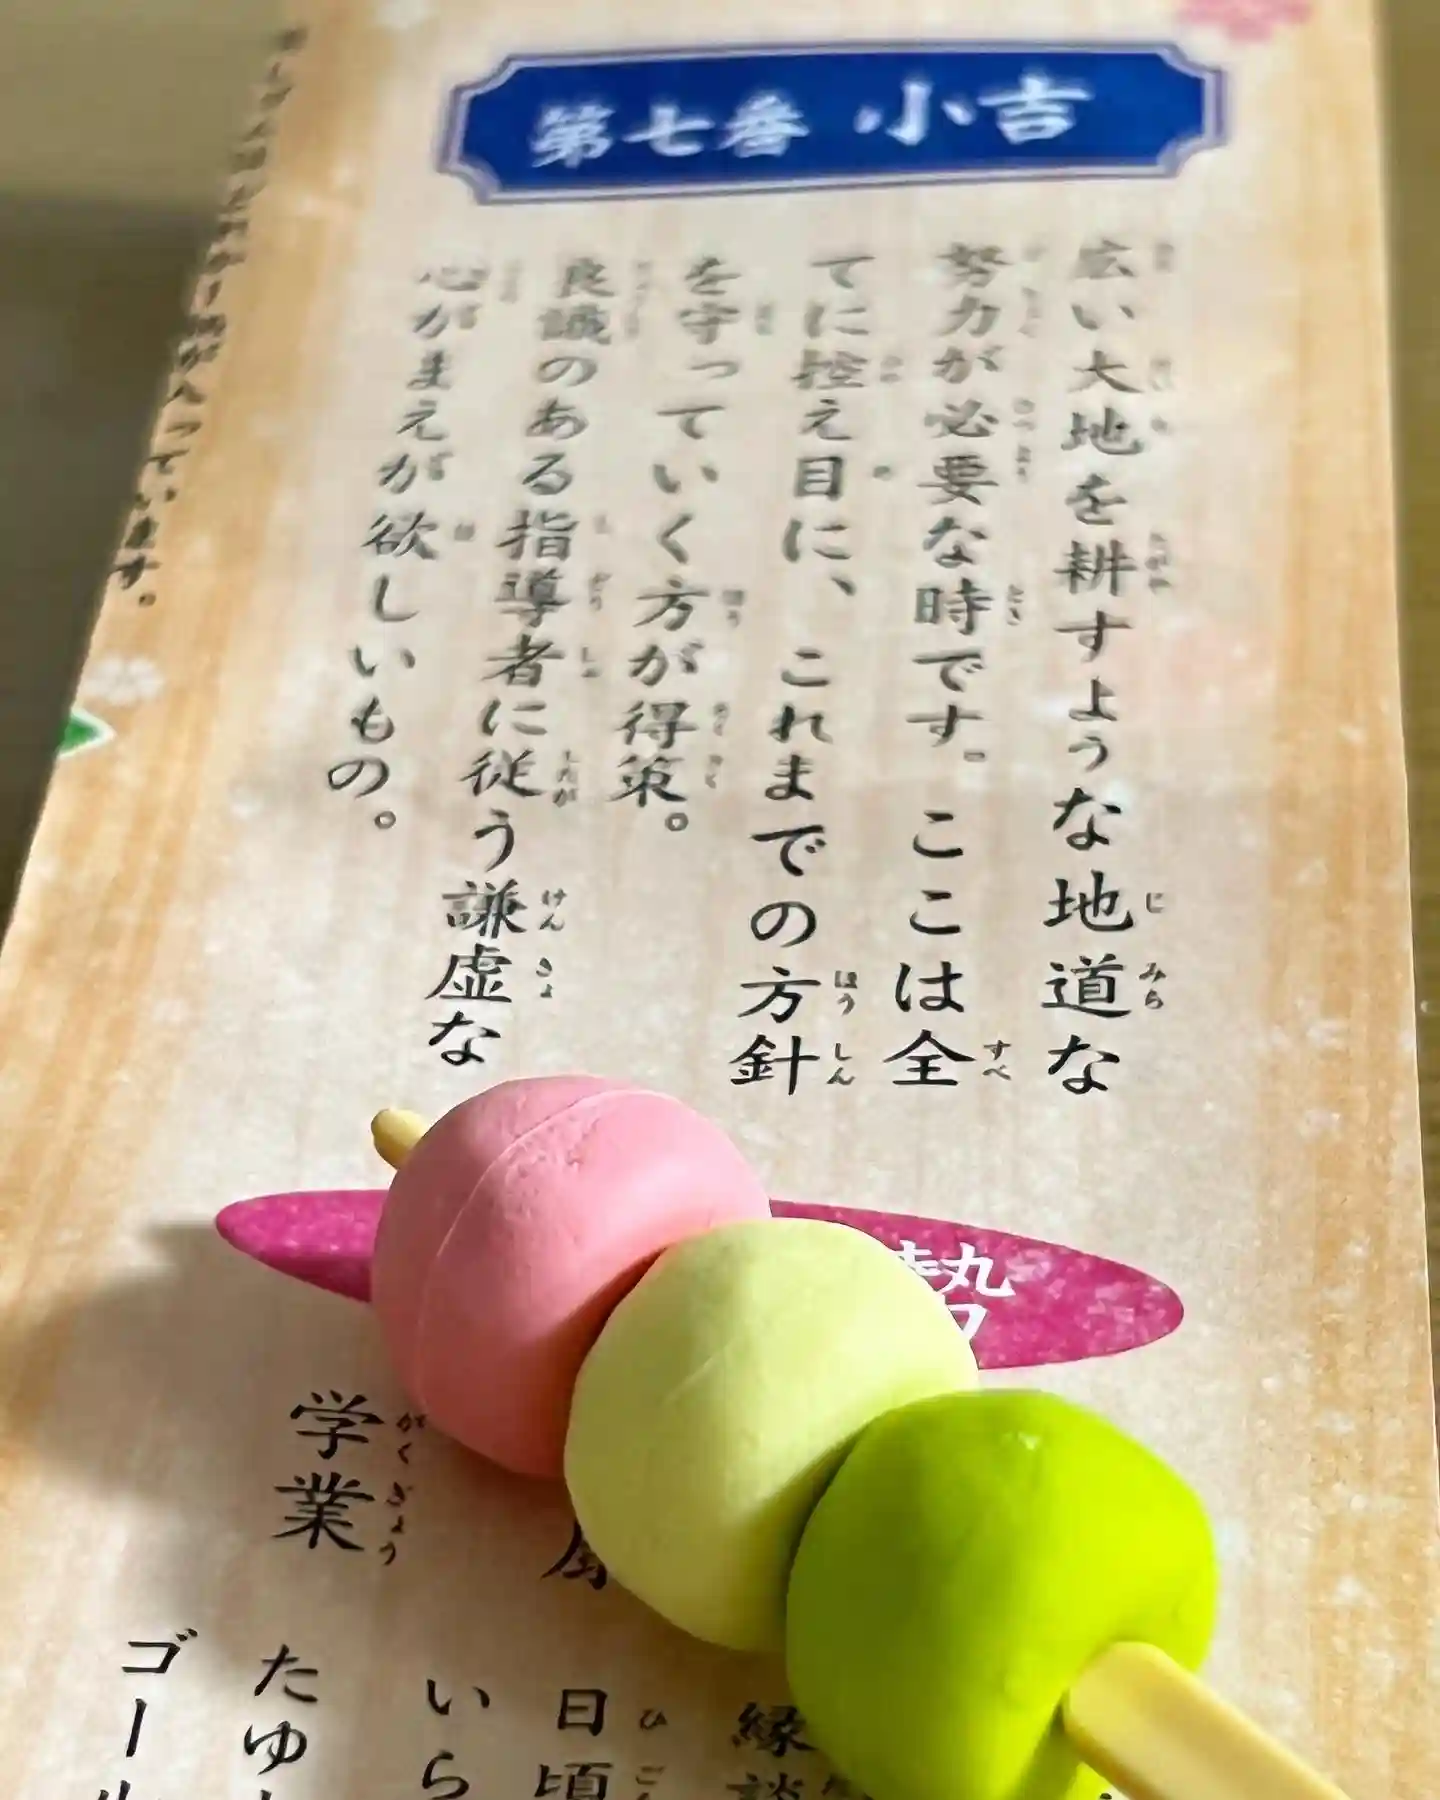 第七番 小吉
広い大地を耕すような地道な
努力が必要な時です。ここは全
てに控え目に、これまでの方針
を守っていく方が得策。
良識のある指導者に従う謙虚な
心がまえが欲しいもの。
が入っています。
縁談
日頃
いら
学業
たゆ
ゴール